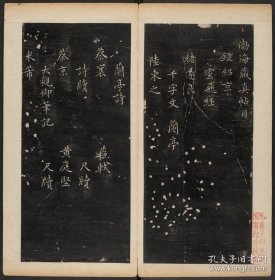 渤海藏真帖目
鍾紹京
靈飛經
褚遂良
千字文 蘭亭
陸柬之
蘭亭詩
蔡襄 蘇軾
詩牘 尺牘
蔡京 黃庭堅
大觀御筆記 尺牘
米芾
孔夫子旧书网